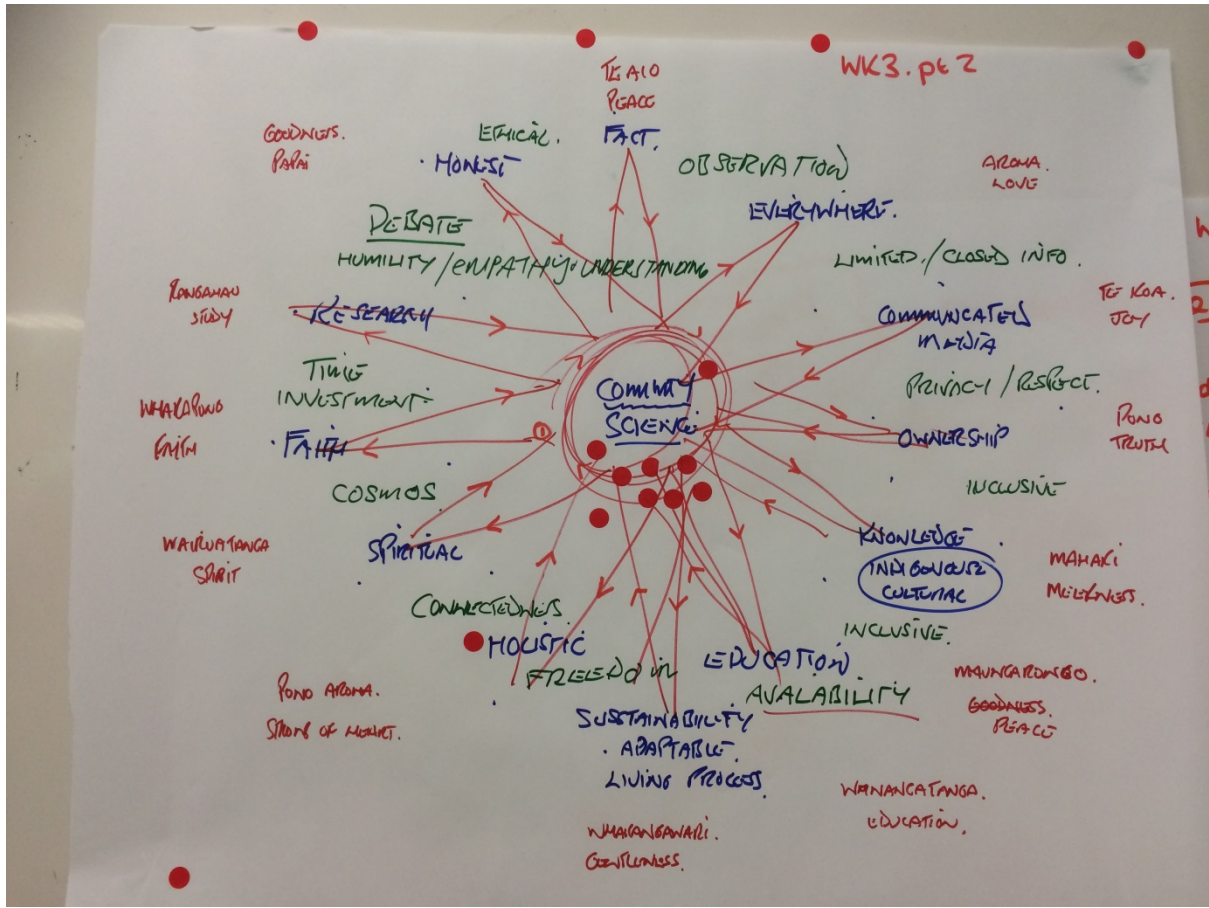 WK3. pt 2
TE AIO
PEACE
FACT.
ETHICAL.
HONEST
GOODNESS.
PAPAI
OBSERVATION
EVERYWHERE.
AROHA.
LOVE
DEBATE
HUMILITY / EMPATHY. UNDERSTANDING
LIMITED / CLOSED INFO.
RANGAHAU
STUDY
RESEARCH
COMMUNCATED
MEDIA
TE KOA.
JOY
TIME
INVESTMENT
COMMUNITY
SCIENCE
PRIVACY / RESPECT.
WHAKAPONO
FAITH
FAITH
OWNERSHIP
PONO
TRUTH
COSMOS
INCLUSIVE
WAIRUATANGA
SPIRIT
SPIRITUAL
KNOWLEDGE
INDIGONOUS
CULTURAL
MAHAKI
MEEKNESS.
CONNECTEDNESS
HOLISTIC
FREEDOM
EDUCATION
AVALABILITY
INCLUSIVE.
MAUNGARONGO.
GOODNESS.
PEACE
PONO AROHA.
STRONG OF HEART.
SUSTAINABILITY
ADAPTABLE.
LIVING PROCESS
WANANGATANGA.
EDUCATION.
WHAKANGAWARI.
GENTLENESS.